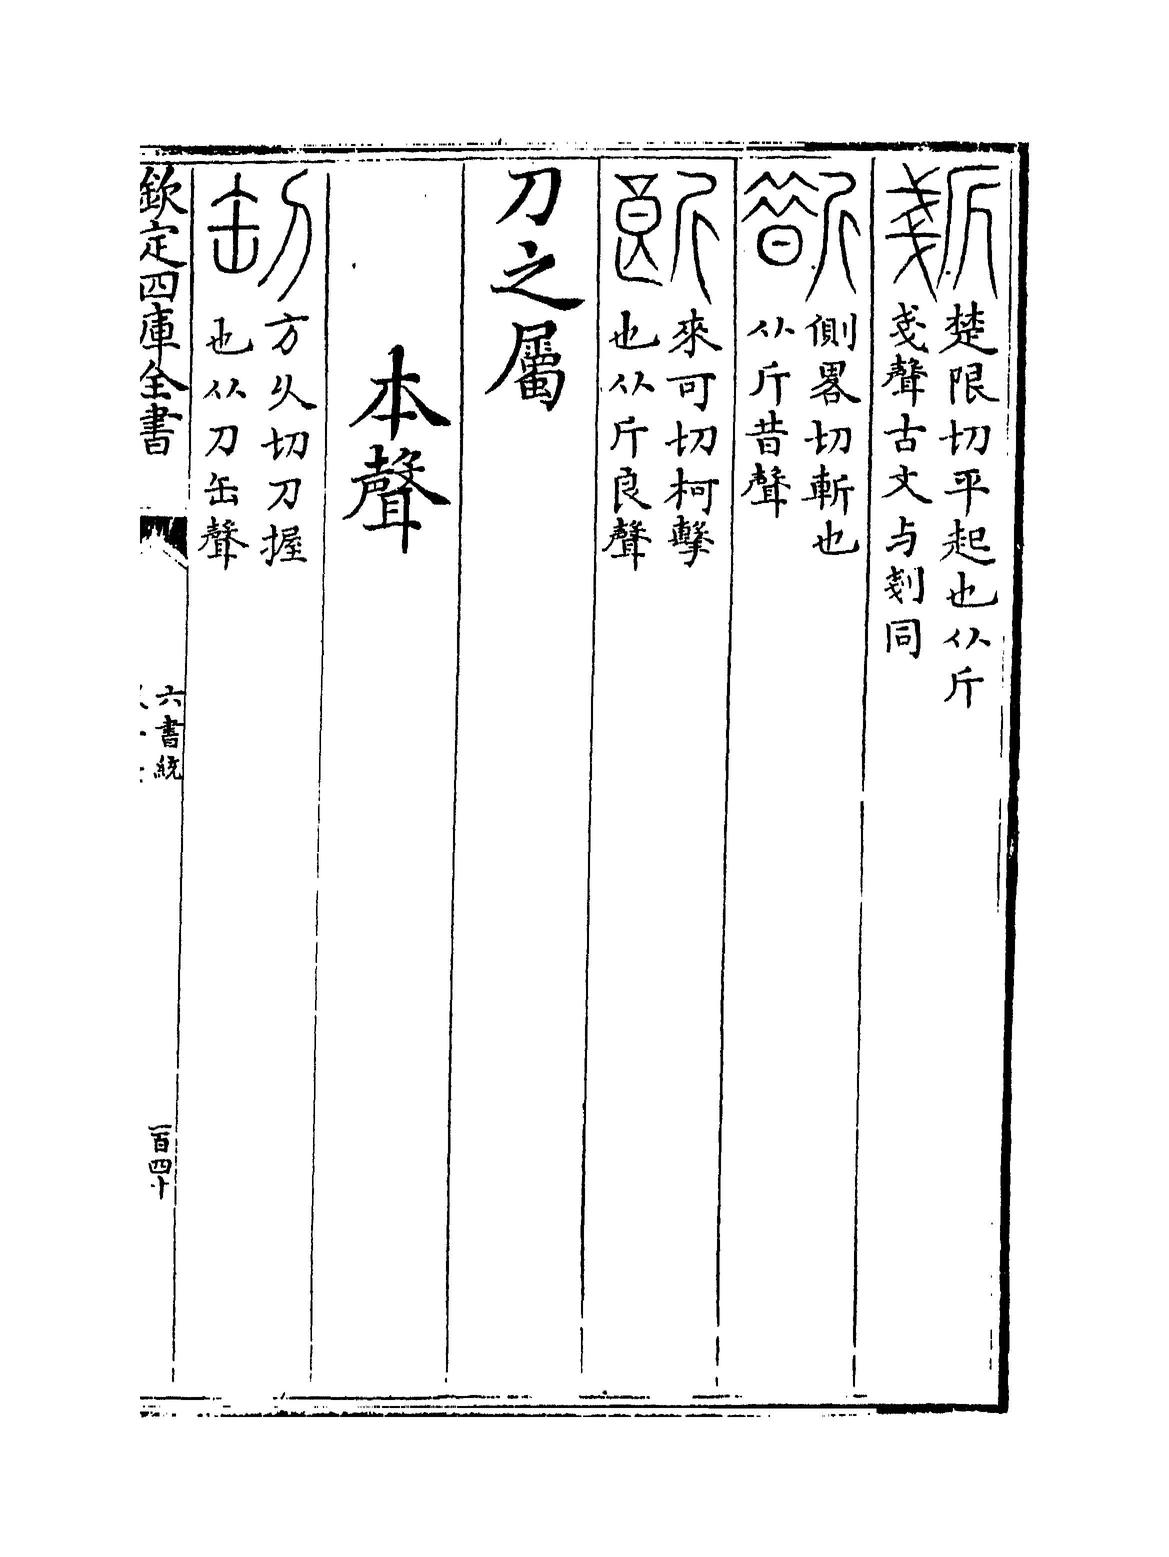 楚限切平起也从斤
戔聲古文与剗同
側畧切斬也
从斤昔聲
來可切柯擊
也从斤良聲
刀之屬
本聲
方久切刀握
也从刀缶聲
欽定四庫全書
六書統
一百四十